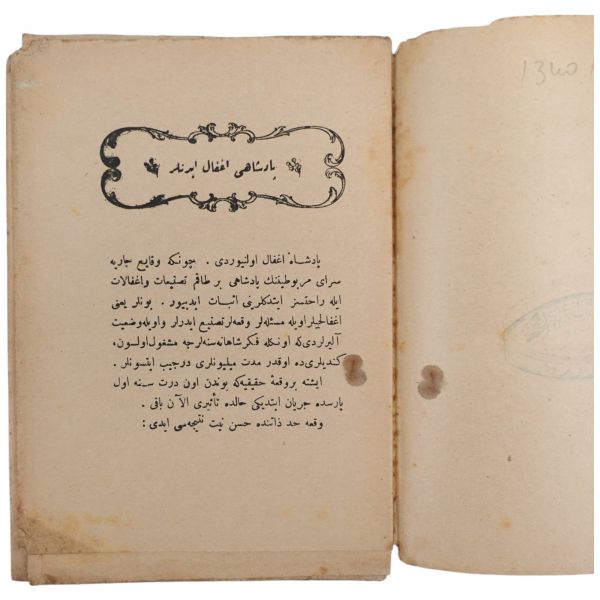 1340
پادشاهی اغفال ایدنلر
پادشاه اغفال اولنیوردی . چونکه وقایع جاریه
سرای مربوطیننك پادشاهی بر طاقم تصنیعات و اغفالات
ایله راحتسز ایتدكلرینی اثبات ایدییور . بونلر یعنی
اغفالجیلر اویله مسئله‌لر وقعه‌لر تصنیع ایدرلر و اویله وضعیت
آلیرلردی‌كه اونكله فكر شاهانه سنه‌لرجه مشغول اولسون،
كندیلری‌ده اوقدر مدت میلیونلری درجیب ایتسونلر .
ایشته بر وقعهٔ حقیقیه‌كه بوندن اون درت سنه اول
پارسده جریان ایتدیكی حالده تأثیری الآن باقی .
وقعه حد ذاتنده حسن نیت نتیجه‌سی ایدی :